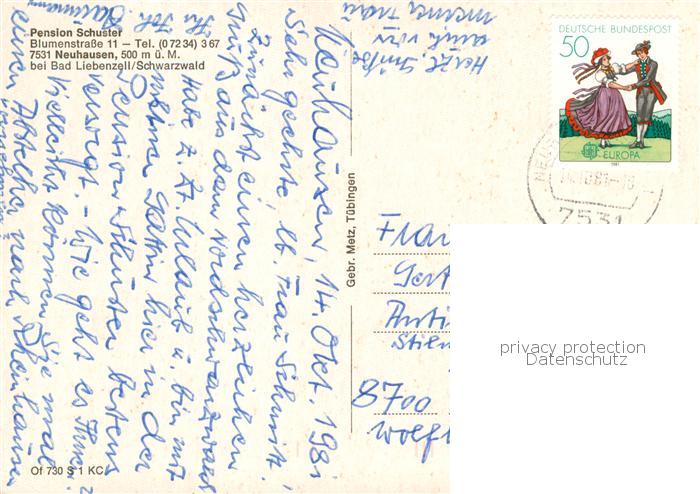 Pension Schuster
Blumenstraße 11 – Tel. (0 72 34) 3 67
7531 Neuhausen, 500 m ü. M.
bei Bad Liebenzell/Schwarzwald
Neuhausen, 14. Okt. 1981
Sehr geehrte, lb. Frau Schmitt!
Zunächst einen herzlichen
Gruß aus dem Nordschwarzwald
Habe z. Zt. Urlaub u. bin mit
meiner Gattin hier in der
Pension Schuster bestens
versorgt. – Wie geht es Ihnen?
Vielleicht können Sie mal
einen Abstecher nach Rheinhausen
Ihr Joh.
Herzl. Grüße
auch von
meiner Frau
Gebr. Metz, Tübingen
DEUTSCHE BUNDESPOST
50
EUROPA
1981
7531
Frau
Gert
Anti
Stil
8700
Of 730 S 1 KC
privacy protection
Datenschutz